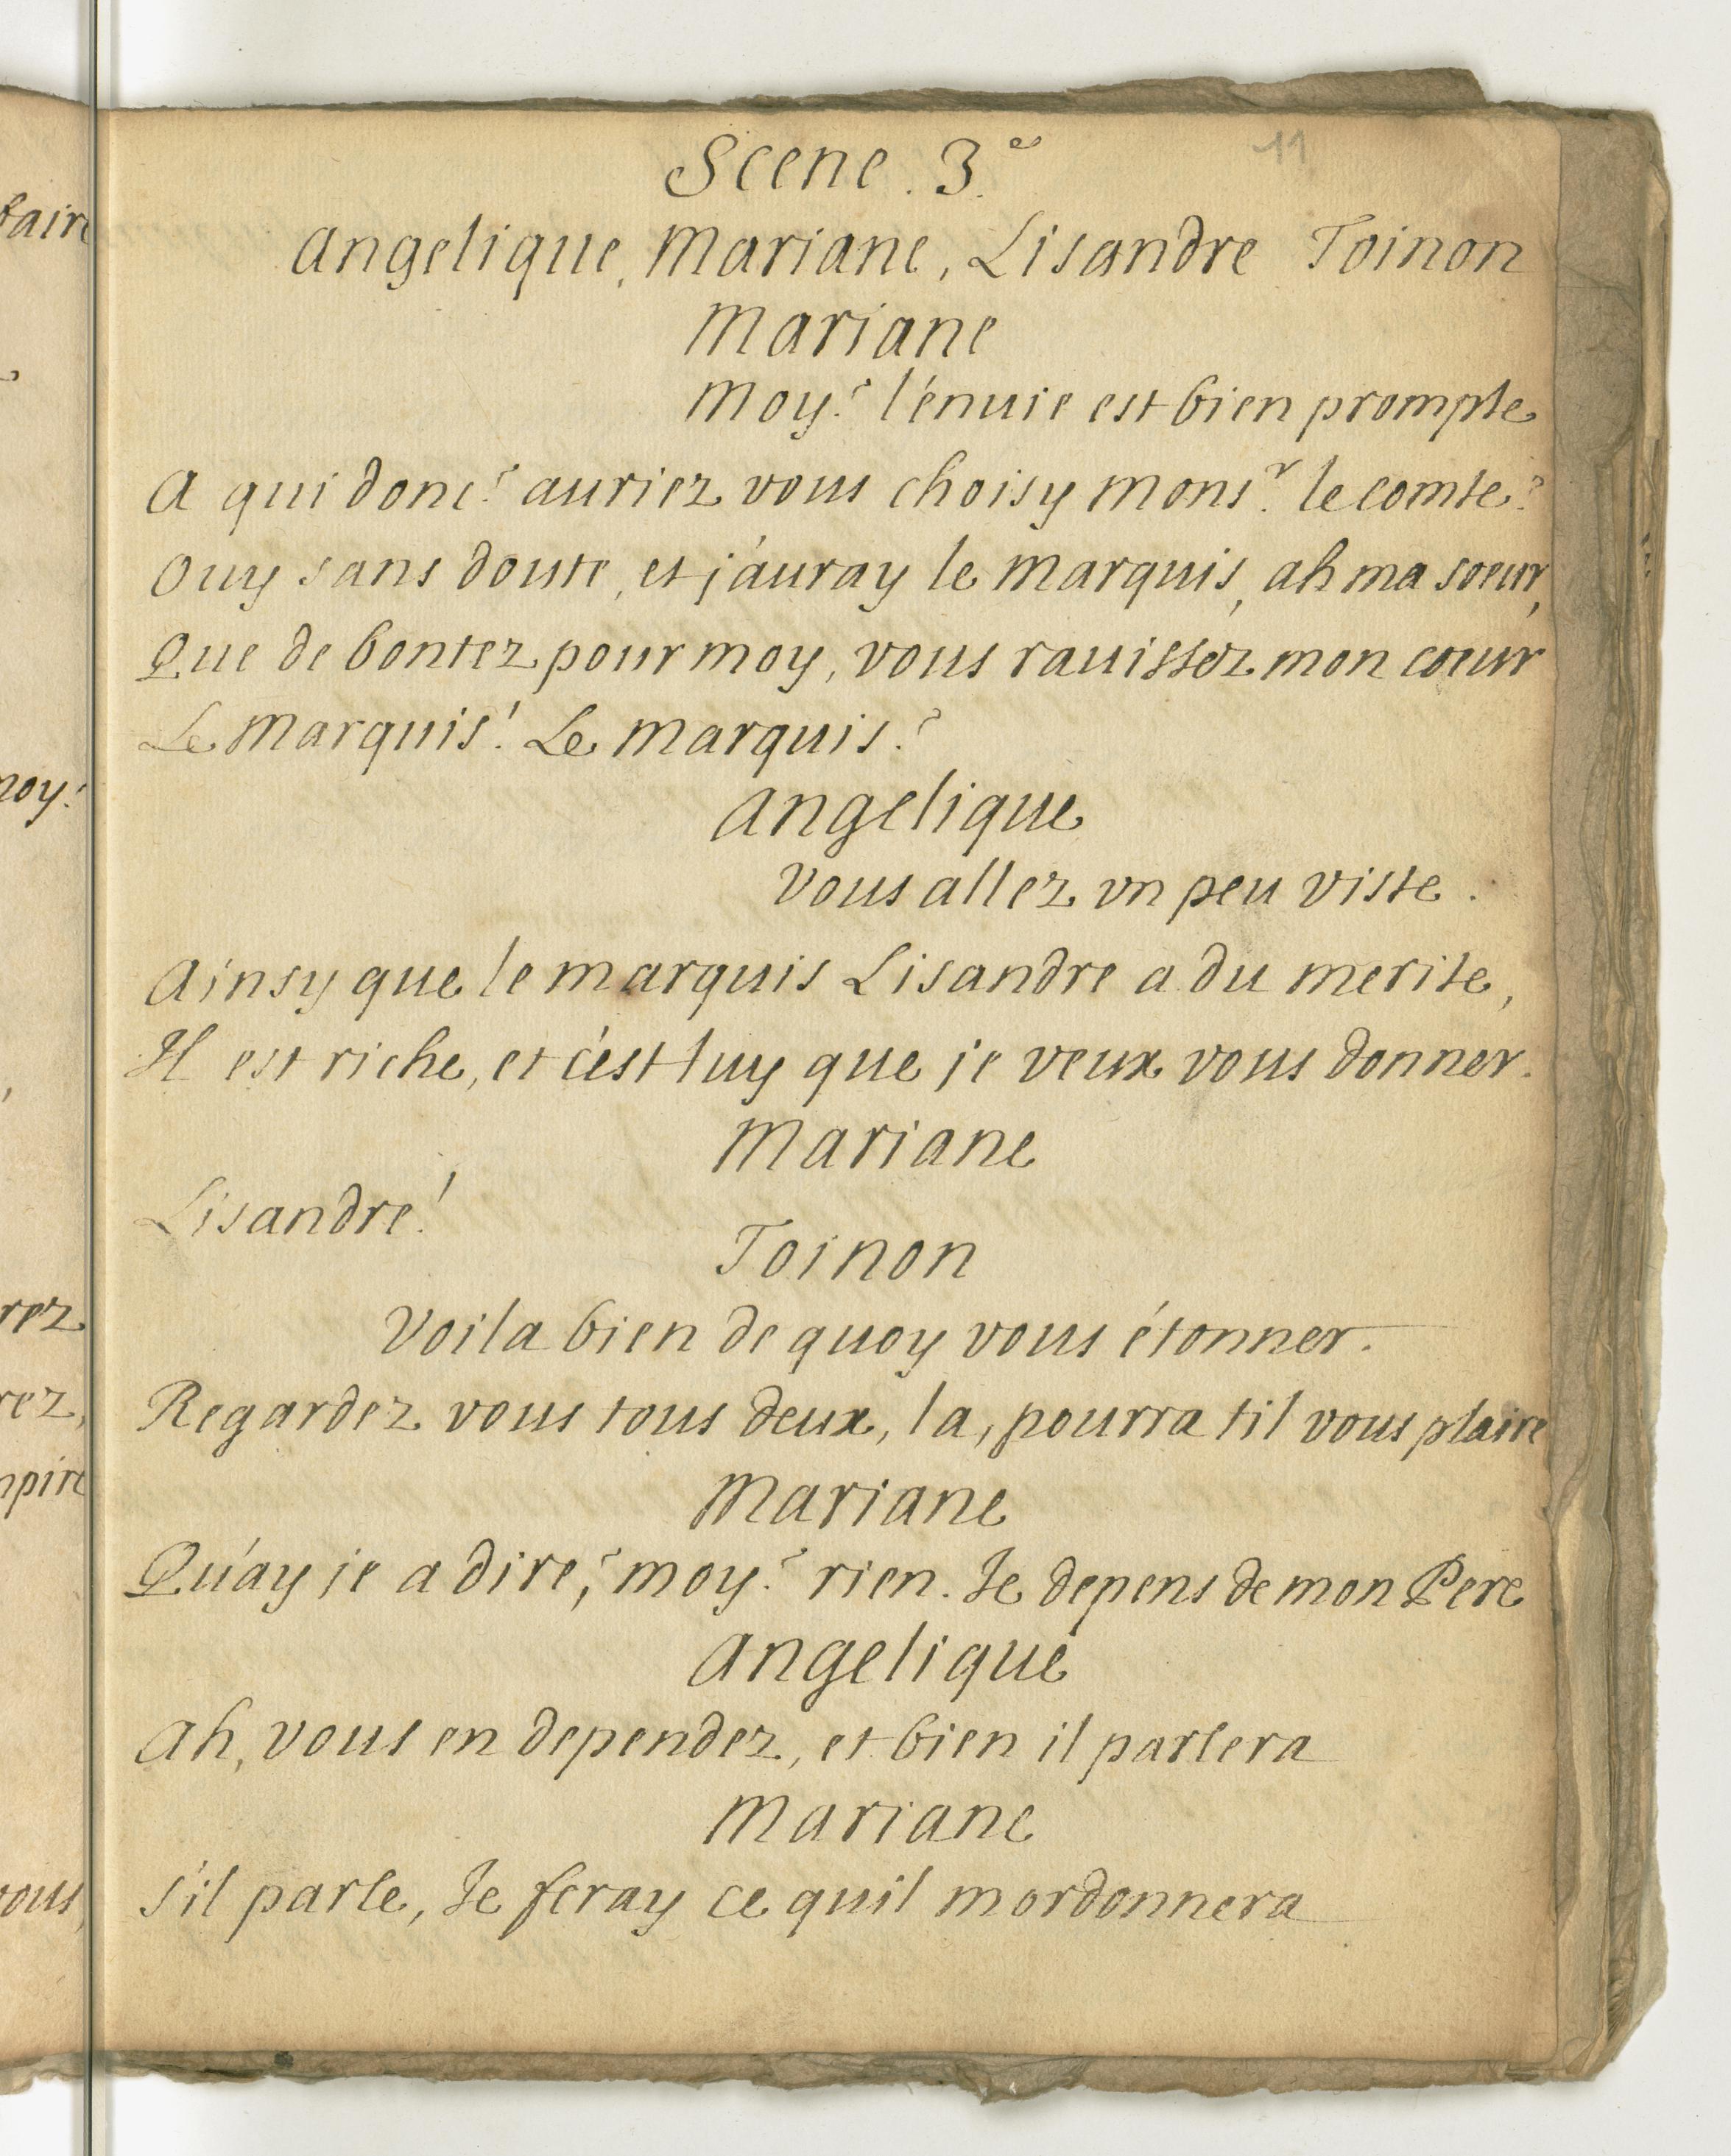 11
Scene. 3.e
Angelique, Mariane, Lisandre Toinon
Mariane
Moy? l'énuie est bien prompte
A qui donc? auriez vous choisy mons.r le comte?
Ouy sans doute, et j'auray le Marquis, ah ma soeur,
Que de bontez pour moy, vous rauissez mon coeur
Le Marquis! Le Marquis?
Angelique
Vous allez vn peu viste.
Ainsy que le marquis Lisandre a du merite,
Il est riche, et c'est luy que je veux vous donner.
Mariane
Lisandre!
Toinon
Voila bien de quoy vous étonner.
Regardez vous tous deux, la, pourra til vous plaire
Mariane
Qu'ay je a dire,? moy? rien. Je depens de mon Pere
Angelique
Ah, vous en dependez, et bien il parlera
Mariane
S'il parle, Je feray ce quil mordonnera
faire
noy!
rez
rez,
npire
vous,